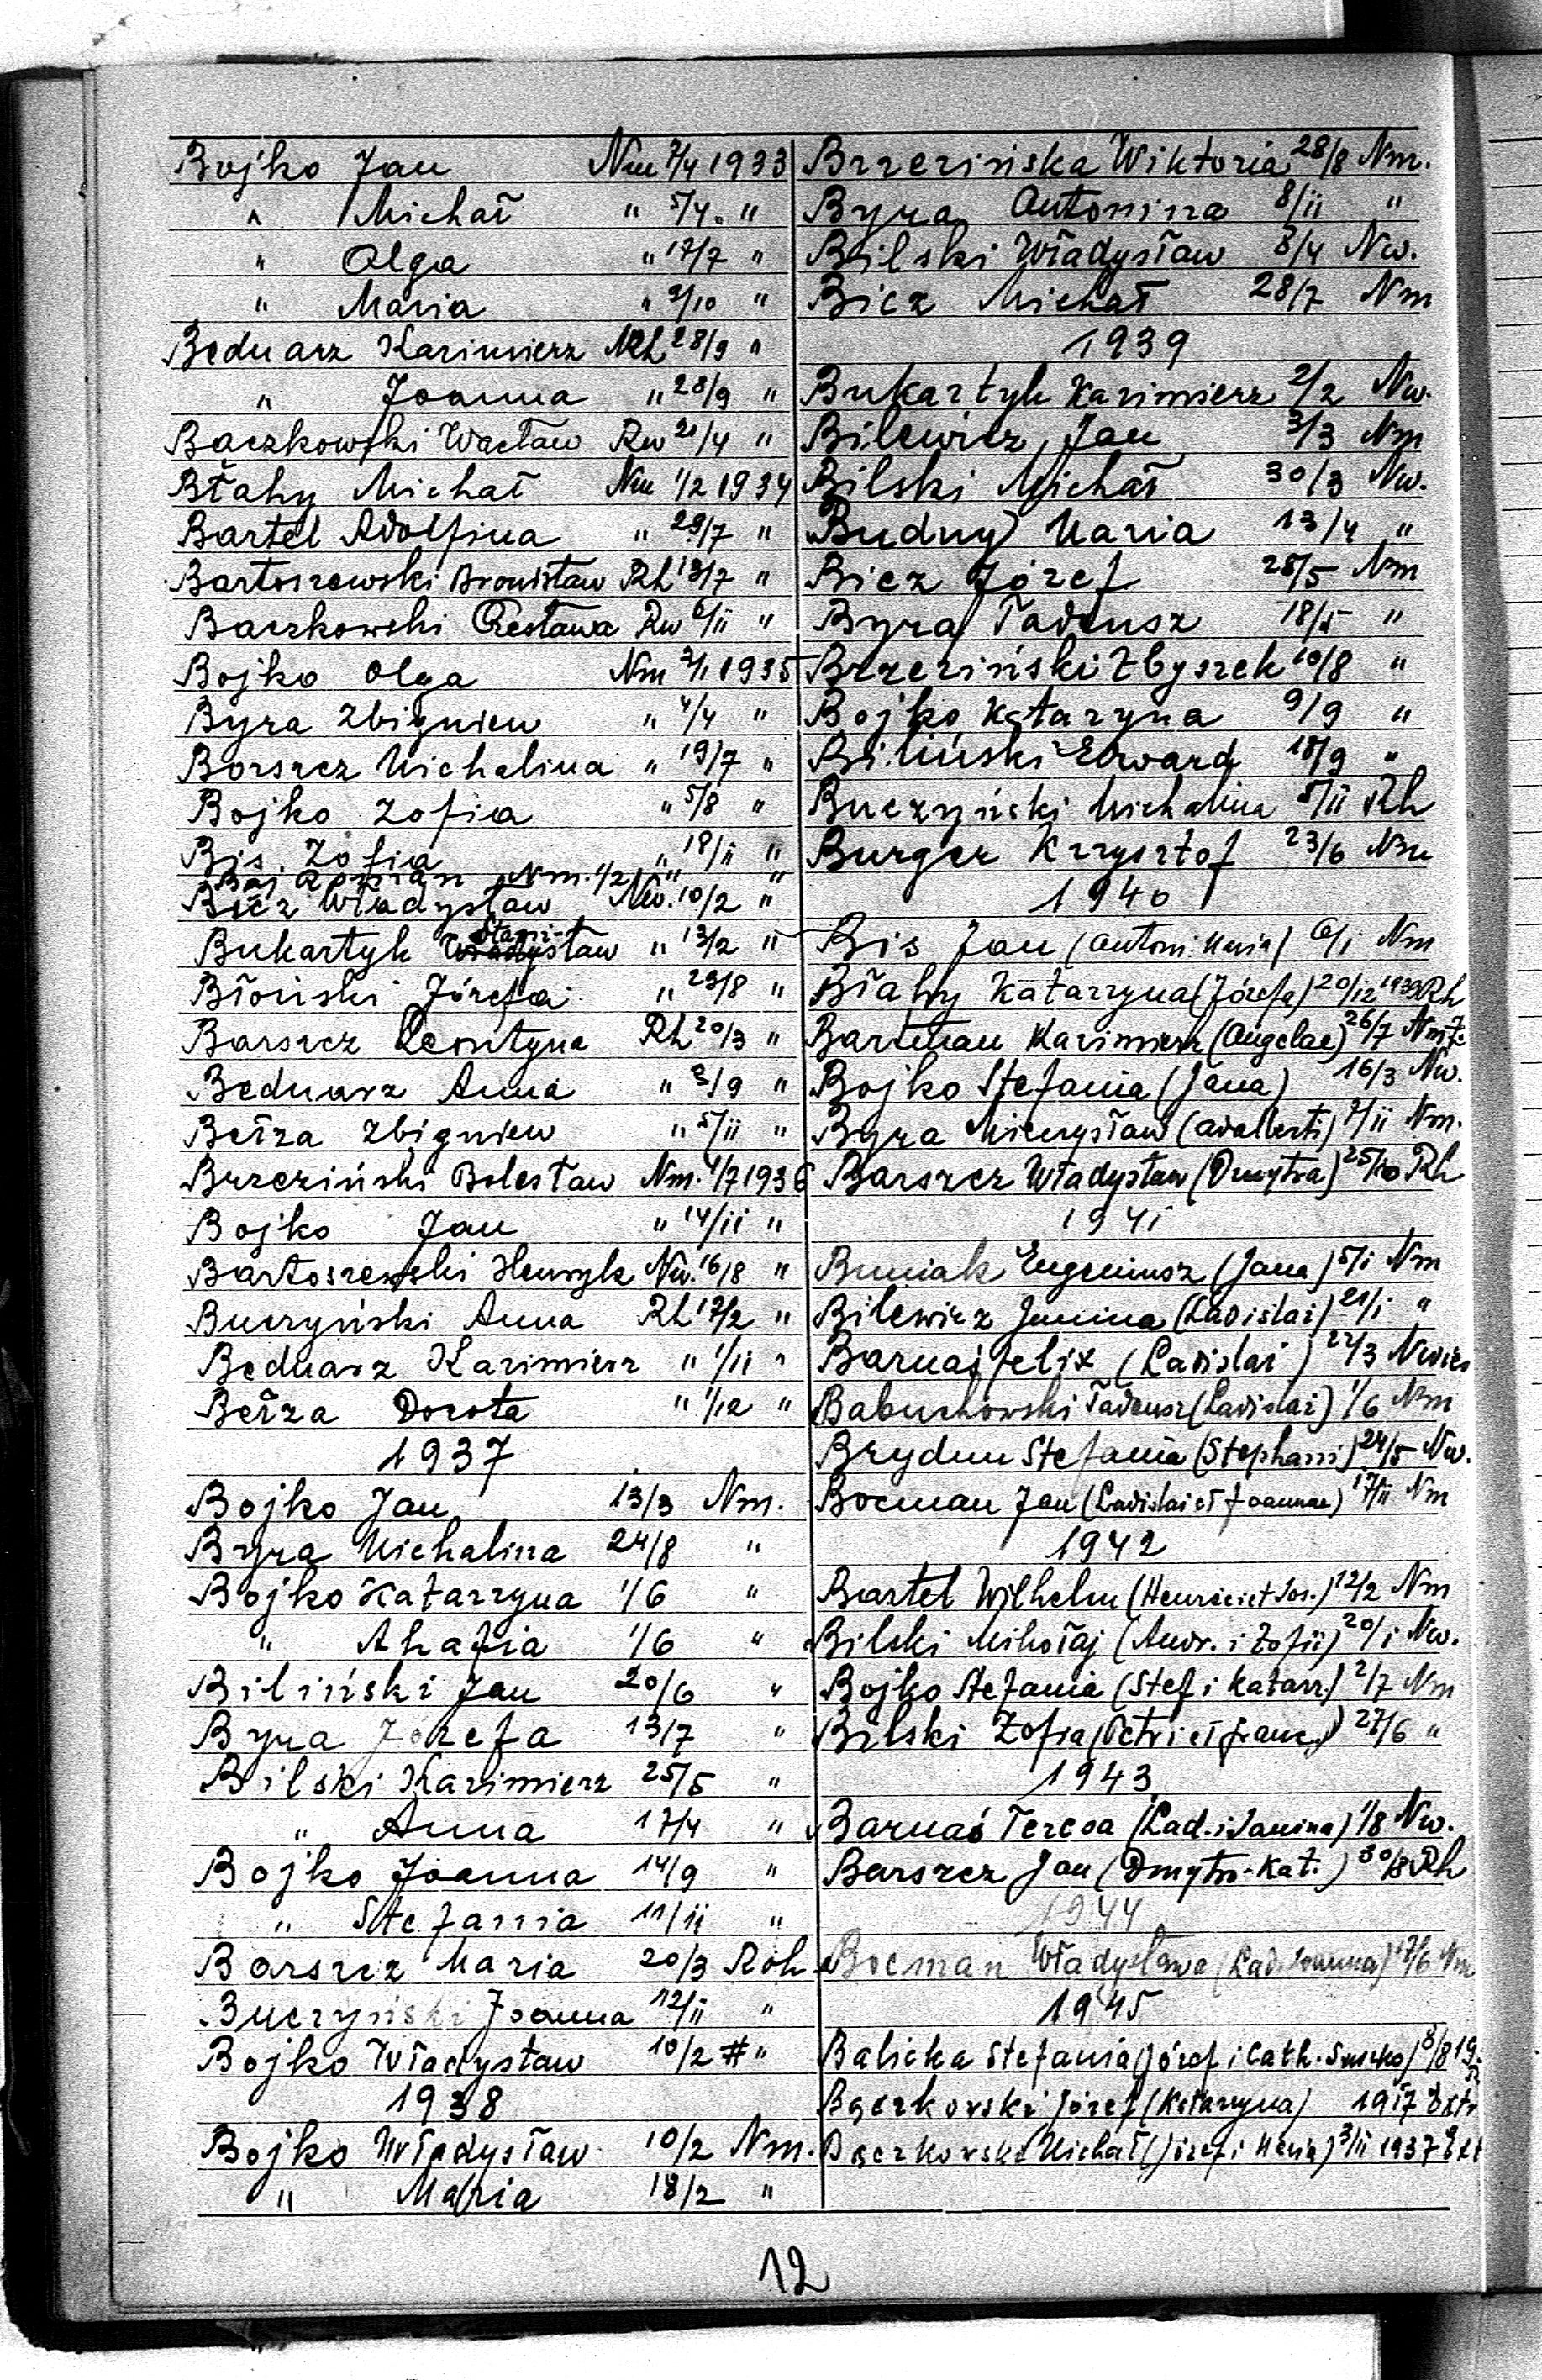 Bojko Jan Nm 2/4 1933
" Michał " 5/4 "
" Olga " 17/7 "
" Maria " 2/10 "
Bednarz Kazimierz Rh 28/9 "
" Joanna " 28/9 "
Baczkowski Wacław Rw 21/4 "
Błahy Michał Nm 1/2 1934
Bartel Adolfina " 29/7 "
Bartoszewski Bronisław Rh 13/7 "
Baczkowski Czesława Rw 6/ii "
Bojko Olga Nm 1935
Byra Zbigniew " 4/4 "
Borszcz Michalina " 19/7 "
Bojko Zofia " 5/8 "
Bis Zofia " 18/ii "
Baj Nm. 1/2 "
Bicz Władysław Nw. 10/2 "
Bukartyk Stanisław " 13/2 "
Błoński Józefa " 29/8 "
Barszcz Leontyna Rh 20/3 "
Bednarz Anna " 3/9 "
Bełza Zbigniew " 5/ii "
Brzeziński Bolesław Nm. 4/7 1936
Bojko Jan " 14/ii "
Bartoszewski Henryk Nw. 16/8 "
Buczyński Anna Rh 17/2 "
Bednarz Kazimierz " 1/ii "
Bełza Dorota " 1/12 "
1937
Bojko Jan 13/3 Nm.
Byra Michalina 24/8 "
Bojko Katarzyna 1/6 "
" Ahafia 1/6 "
Biliński Jan 20/6 "
Byra Józefa 13/7 "
Bilski Kazimierz 25/5 "
" Anna 17/4 "
Bojko Joanna 14/9 "
" Stefania 11/ii "
Barszcz Maria 20/3 Roh
Buczyński Joanna 12/ii "
Bojko Władysław 10/2 # "
1938
Bojko Władysław 10/2 Nm.
" Maria 18/2 "
Brzezińska Wiktoria 28/8 Nm.
Byra Antonina 8/ii "
Bilski Władysław 8/4 Nw.
Bicz Michał 28/7 Nm
1939
Bukartyk Kazimierz 2/2 Nw.
Bilewicz Jan 3/3 Nm
Bilski Michał 30/3 Nw.
Budny Maria 13/4 "
Bicz Józef 28/5 Nm
Byra Tadeusz 18/5 "
Brzeziński Zbyszek 10/8 "
Bojko Katarzyna 9/9 "
Biliński Edward 18/9 "
Buczyński Michalina 5/ii Rh
Burger Krzysztof 23/6 Nm
1940
Bis Jan (Antoni. Maria) 6/i Nm
Błahy Katarzyna (Józefa) 20/12 1939 Rh
Bartman Kazimierz (Angelae) 26/7 Nm
Bojko Stefania (Jana) 16/3 Nw.
Byra Mieczysław (Adalberti) 7/ii Nm.
Barszcz Władysław (Dmytra) 25/10 Rh
1941
Buniak Eugeniusz (Jana) 5/i Nm
Bilewicz Janina (Ladislai) 21/i "
Barnaś Felix (Ladislai) 22/3 Nwies
Baburkowski Tadeusz (Ladislai) 1/6 Nm
Brydun Stefania (Stephani) 24/5 Nw.
Bocman Jan (Ladislai et Joannae) 17/ii Nm
1942
Bartel Wilhelm (Henrici et Jos.) 12/2 Nm
Bilski Mikołaj (Andr. i Zofii) 20/i Nw.
Bojko Stefania (Stef i Katarz.) 2/7 Nm
Bilski Zofia (Petri et Franc.) 27/6 "
1943
Barnaś Teresa (Lad. i Janina) 1/8 Nw.
Barszcz Jan (Dmytro-Kat.) 30/8 Rh
1944
Bocman Władysława (Lad. Joanna) 17/6 Nm
1945
Balicka Stefania (Józef i Cath. ) 8/8
Bączkowski Józef (Katarzyna) 1917 Extr
Bączkowski Michał (Józef i Maria) 3/ii 1937 Ext
12